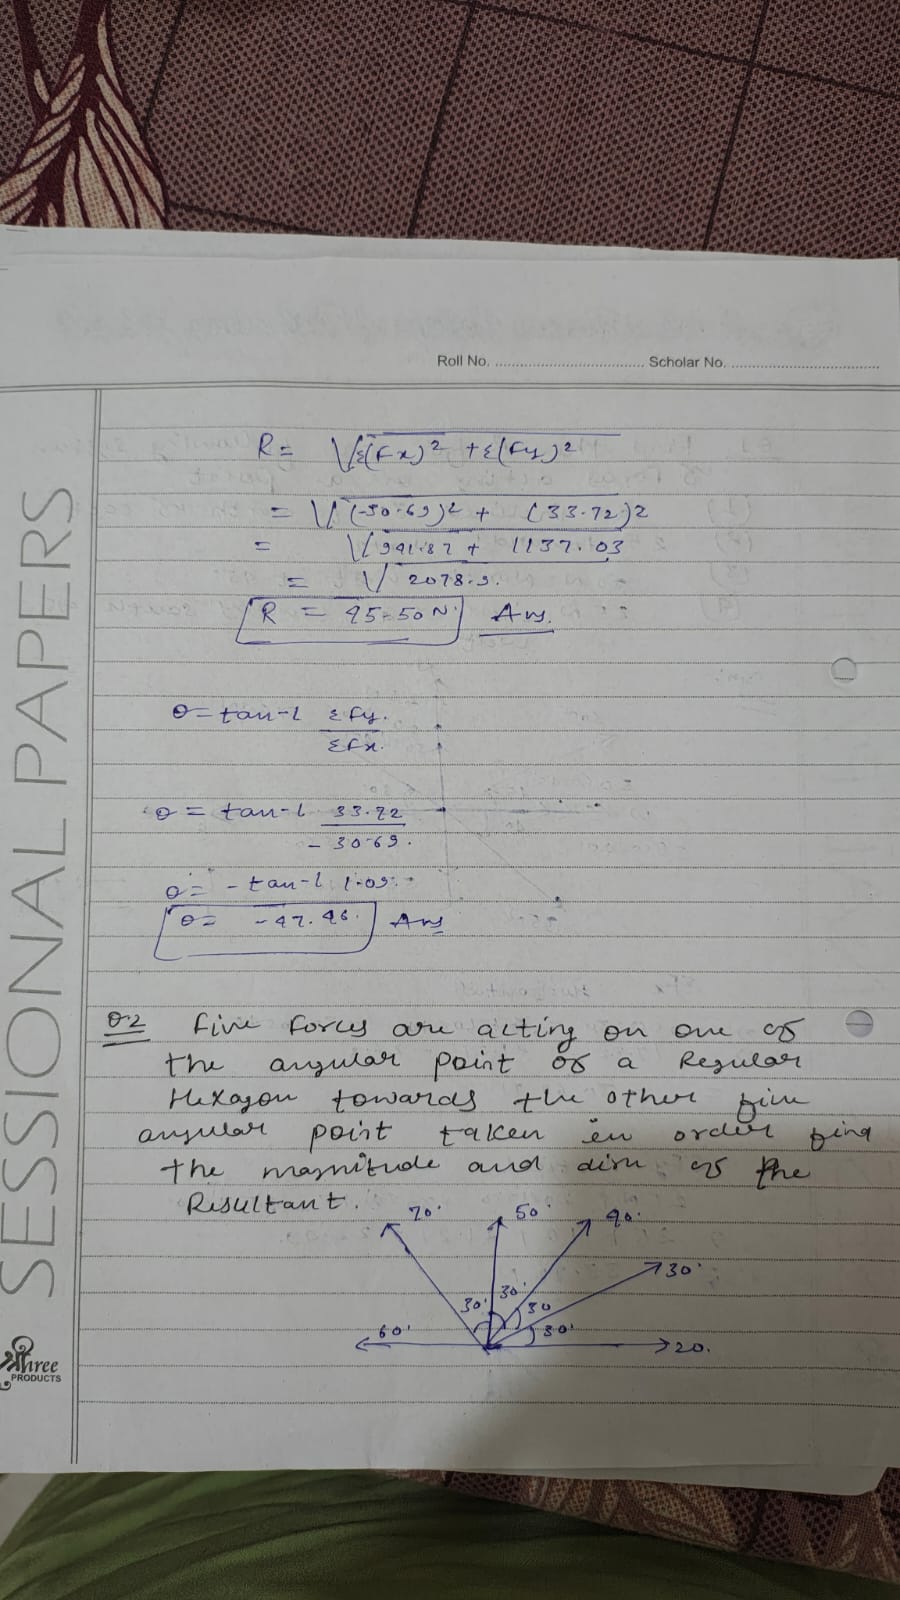 Roll No. .................................. Scholar No. ..................................
SESSIONAL PAPERS
R = √Σ(Fx)² + Σ(Fy)²
= √(-30.69)² + (33.72)2
= √941.87 + 1137.03
= √2078.9.
R = 45.50 N Ans.
θ = tan-1 ΣFy.
ΣFx.
θ = tan-1 33.72
- 30.69.
θ = - tan-1 1.09.
θ = - 47.46. Ans
Q.2 five forces are acting on one of
the angular point of a Regular
Hexagon towards the other five
angular point taken in order find
the magnitude and dirn of the
Resultant.
70. 50. 40.
30.
30. 30. 30
60. 30. 20.
श्री Shree
PRODUCTS